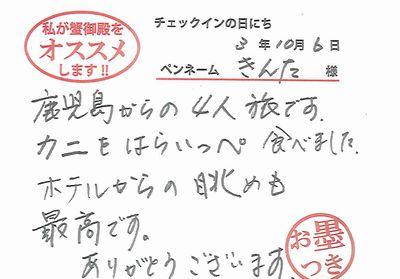 私が蟹御殿を
オススメ
します!!
チェックインの日にち
3年10月6日
ペンネーム きんた 様
鹿児島からの4人旅です.
カニをはらいっぺ食べました.
ホテルからの眺めも
最高です。
ありがとうございます.
お墨
つき